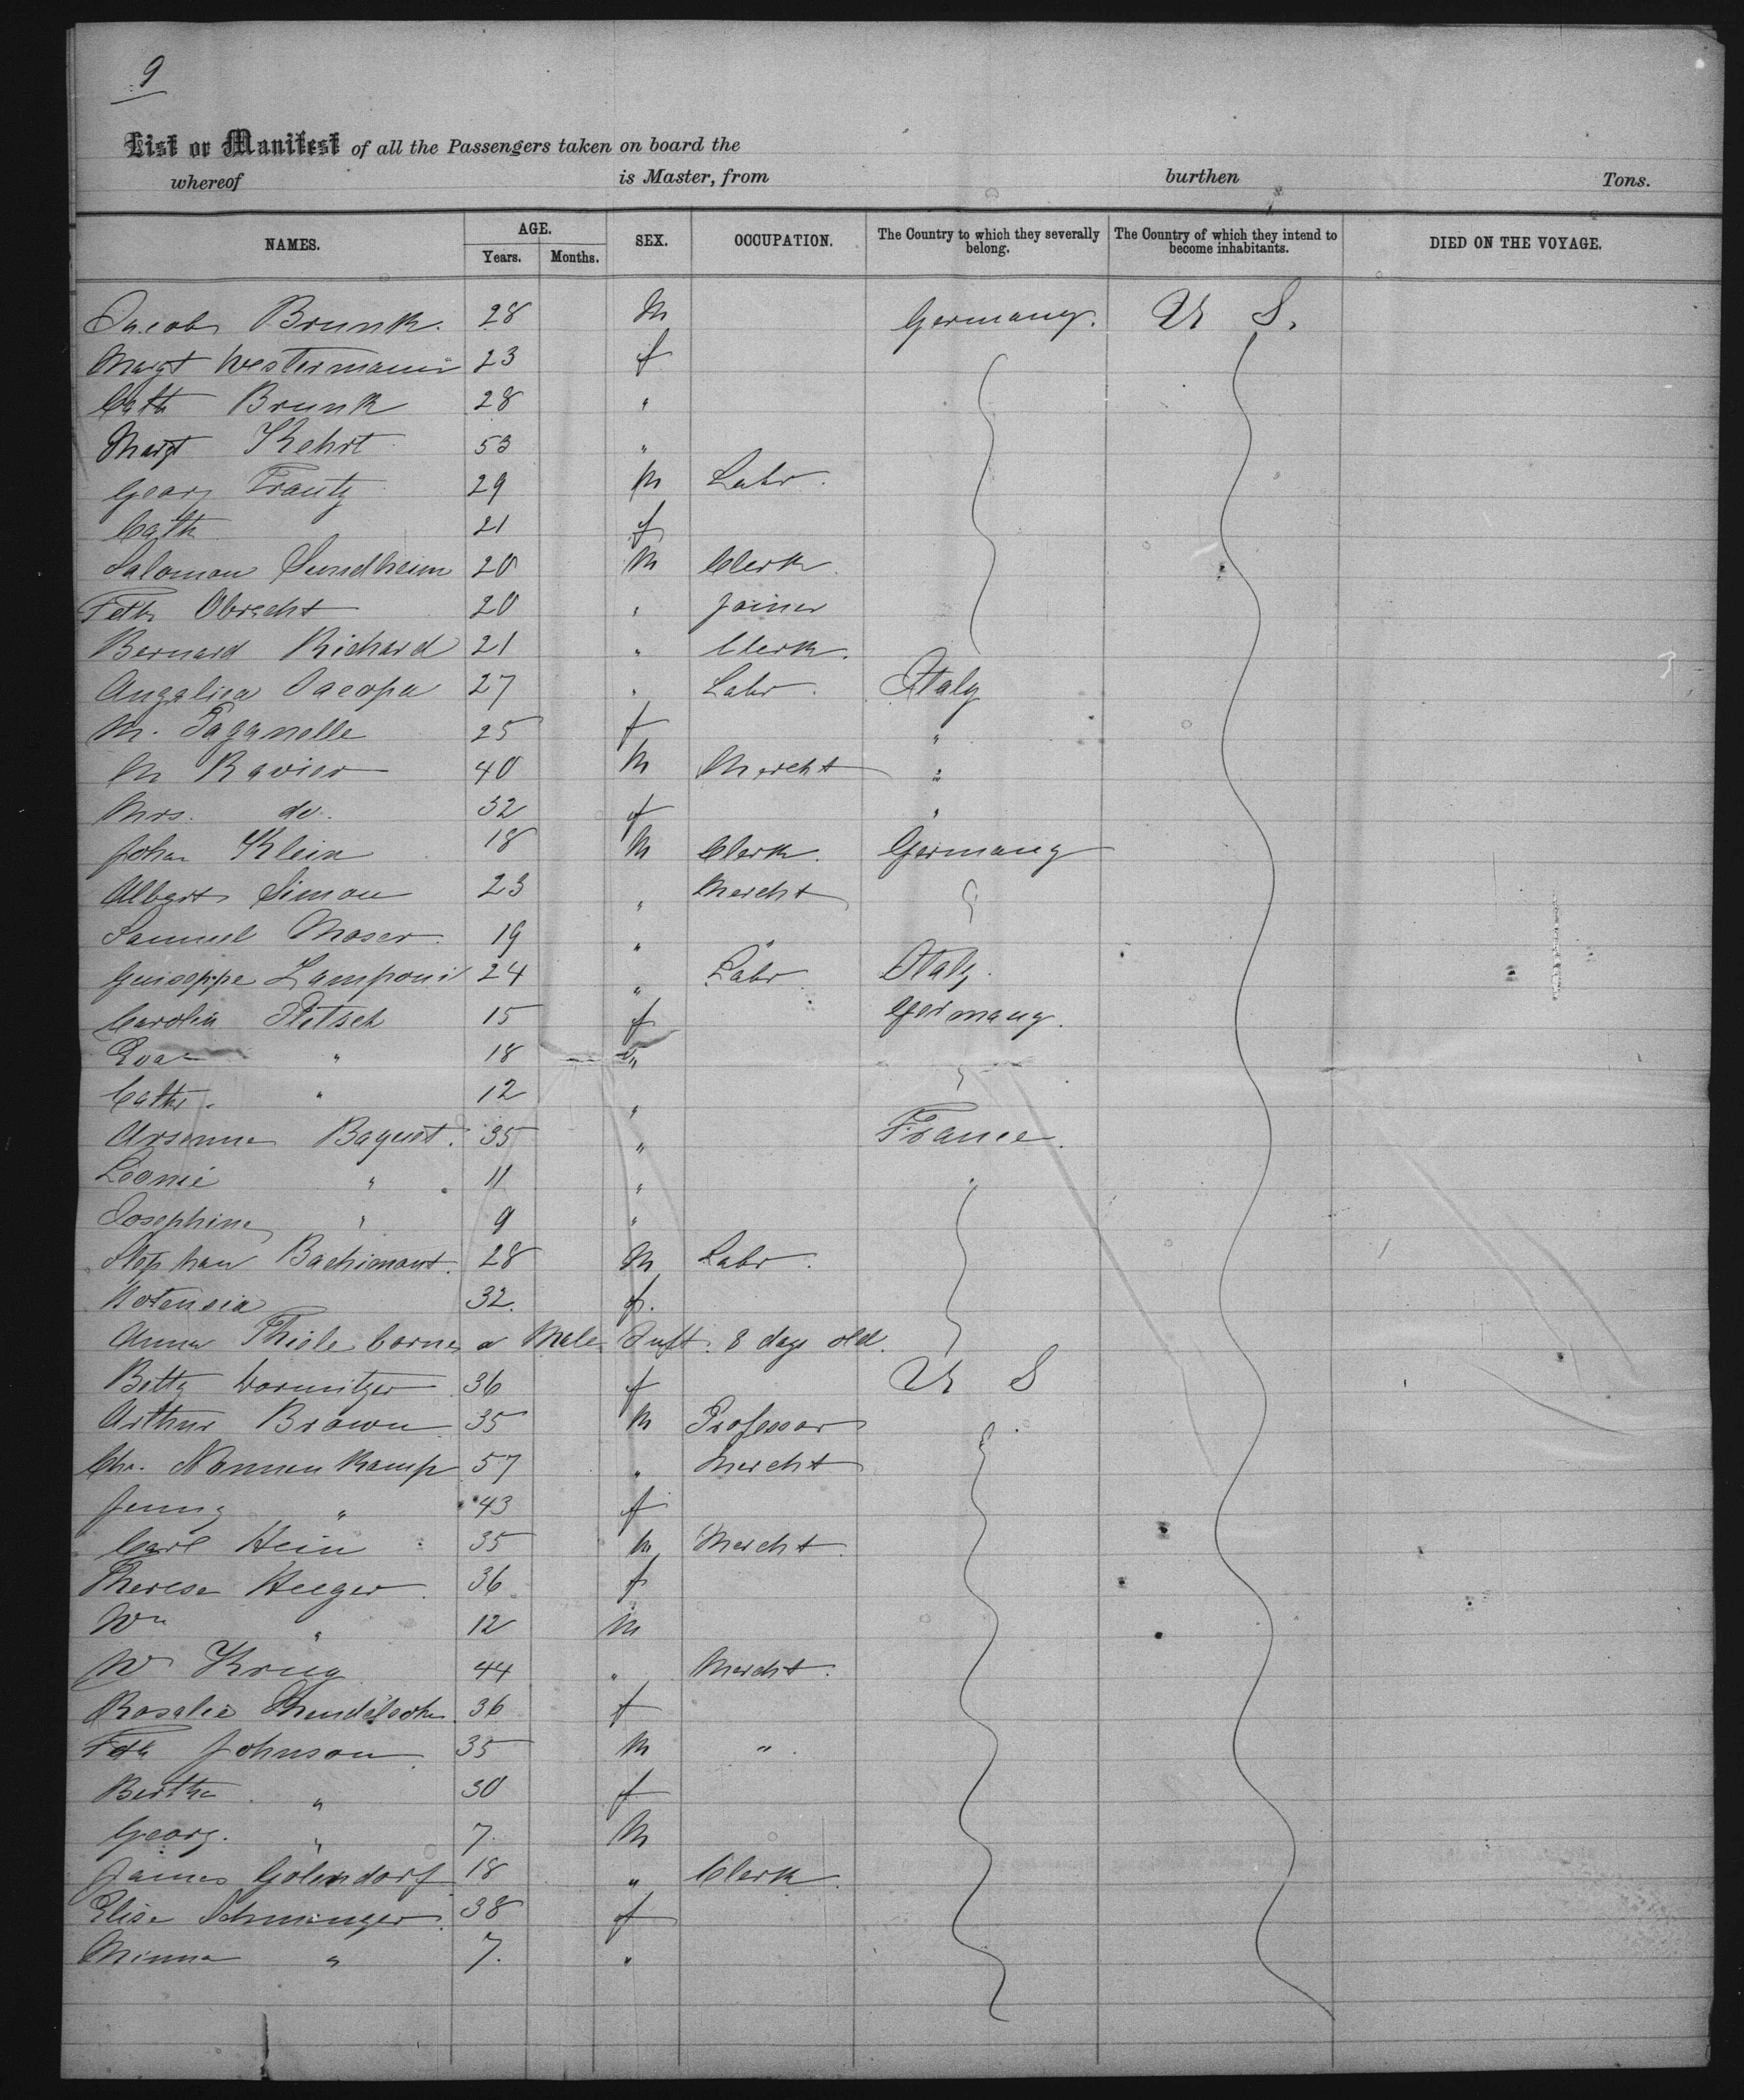 9
List or Manifest of all the Passengers taken on board the
whereof is Master, from burthen Tons.
NAMES. AGE. Years. Months. SEX. OCCUPATION. The Country to which they severally belong. The Country of which they intend to become inhabitants. DIED ON THE VOYAGE.
Jacob Brunk. 28 M Germany. U S.
Margt Westermann 23 f
Cath Brunk 28 "
Margt Kehrt 53 "
Georg Frantz 29 M Labr.
Cath 21 f
Salomon Sundheim 20 M Clerk.
Fetk Obrecht 20 " Joiner
Bernard Richard 21 " Clerk.
Angalica Jacopa 27 " Labr. Italy
M. Paganelle 25 f "
M Ravier 40 M Mercht "
Mrs. do. 32 f "
John Klein 18 M Clerk. Germany
Albert Simon 23 " Mercht
Samuel Moser. 19 " "
Guiseppe Lamponi 24 " Labr. Italy.
Carolin Pletsch 15 f Germany.
Eva " 18 "
Cath. " 12 "
Arsenne Baquet. 35 " France.
Leonie " 11 "
Josephine " 9 "
Stephan Bachimont. 28 M Labr.
Hotensia 32. f.
Anna Thiele borne a Male Inft. 8 days old.
Betty Wormitzer 36 f U S
Arthur Brown 35 M Professor
Chr. Nonnenkamp 57 " Mercht
Jenny " 43 f
Carl Hein 35 M Mercht.
Therese Heeger. 36 f
Wm " 12 M
W Krug 44 " Mercht.
Rosalie 36 f
Fetk Johnson. 35 M "
Bertha " 30 f
Georg. " 7. M
James Golendorf 18 " Clerk.
Elise Schmenger. 38 f
Minna " 7. "